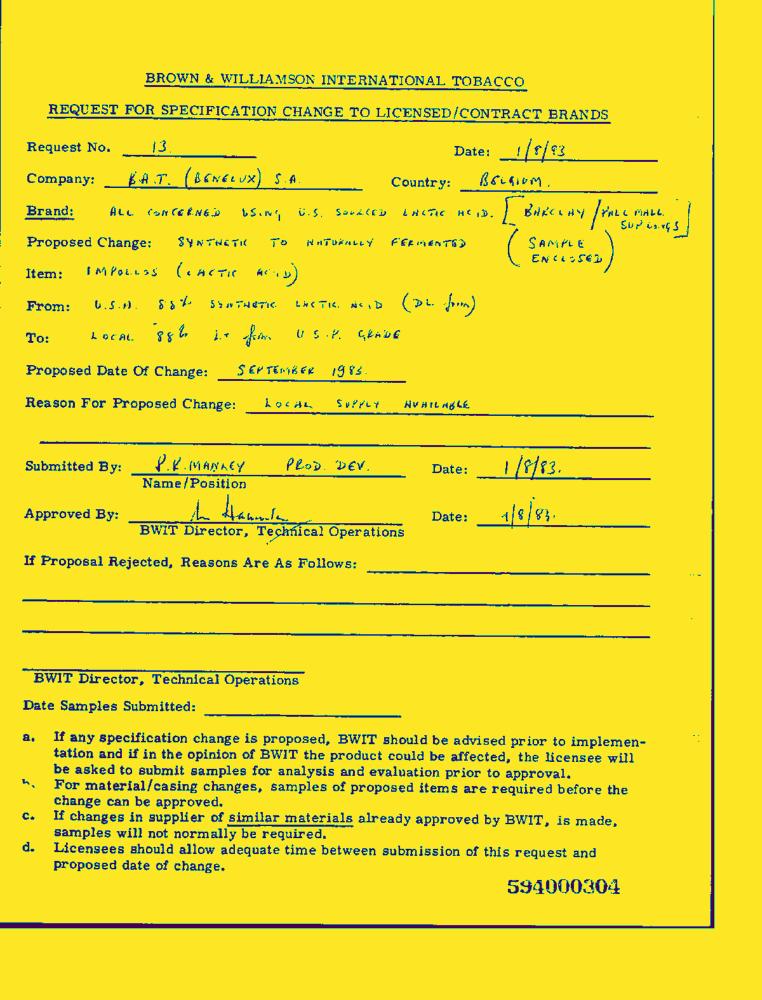 BROWN & WILLIAMSON INTERNATIONAL TOBACCO
REQUEST FOR SPECIFICATION CHANGE TO LICENSED/CONTRACT BRANDS
Request No. 13. Date: 1/8/83
Company: B.A.T. (BENELUX) S.A. Country: BELGIUM.
Brand: ALL CONCERNED USING U.S. SOURCED LACTIC ACID. [BARCLAY / PALL MALL
Proposed Change: SYNTHETIC TO NATURALLY FERMENTED (SAMPLE ENCLOSED)
Item: (LACTIC ACID)
From: U.S.A. 88% SYNTHETIC LACTIC ACID (DL form)
To: LOCAL 88% L+ form U.S.P. GRADE
Proposed Date Of Change: SEPTEMBER 1983.
Reason For Proposed Change: LOCAL SUPPLY AVAILABLE
Submitted By: P.K. MANLEY PROD. DEV. Date: 1/8/83.
Name/Position
Approved By: Date: 1/8/83.
BWIT Director, Technical Operations
If Proposal Rejected, Reasons Are As Follows:
BWIT Director, Technical Operations
Date Samples Submitted:
a. If any specification change is proposed, BWIT should be advised prior to implemen-
tation and if in the opinion of BWIT the product could be affected, the licensee will
be asked to submit samples for analysis and evaluation prior to approval.
b. For material/casing changes, samples of proposed items are required before the
change can be approved.
c. If changes in supplier of similar materials already approved by BWIT, is made,
samples will not normally be required.
d. Licensees should allow adequate time between submission of this request and
proposed date of change.
594000304